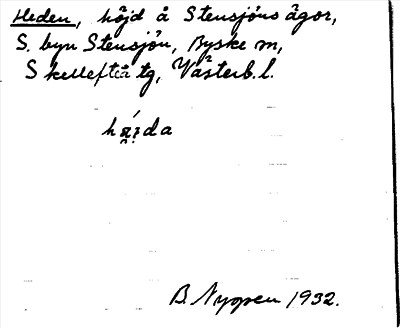 Heden, höjd å Stensjöns ägor,
S. byn Stensjön, Byske sn,
Skellefteå tg, Västerb. l.
B. Nygren 1932.